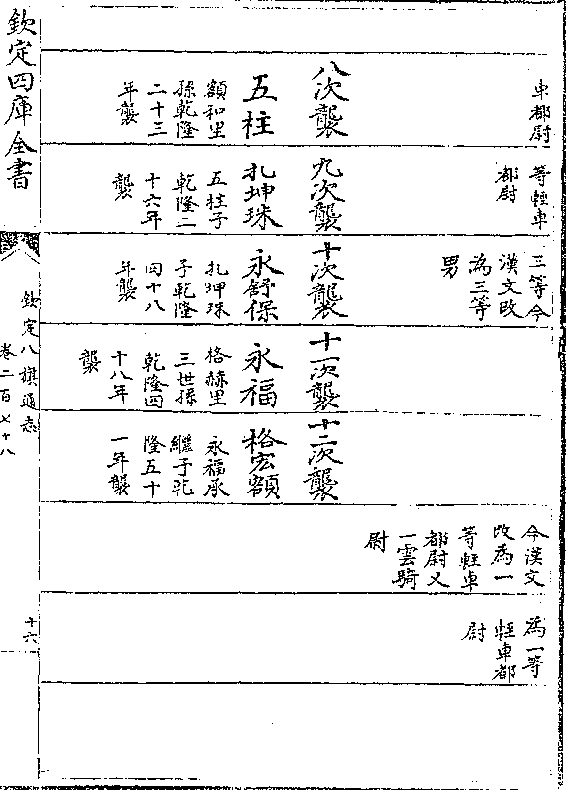 車都尉
等輕車
都尉
三等今
漢文改
為三等
男
今漢文
改為一
等輕車
都尉又
一雲騎
尉
為一等
輕車都
尉
八次襲
九次襲
十次襲
十一次襲
十二次襲
五柱
額和里
孫乾隆
二十三
年襲
扎坤珠
五柱子
乾隆二
十六年
襲
永舒保
扎坤珠
子乾隆
四十八
年襲
永福
格赫里
三世孫
乾隆四
十八年
襲
格宏額
永福承
繼子乾
隆五十
一年襲
欽定四庫全書
欽定八旗通志
卷二百七十八
十六